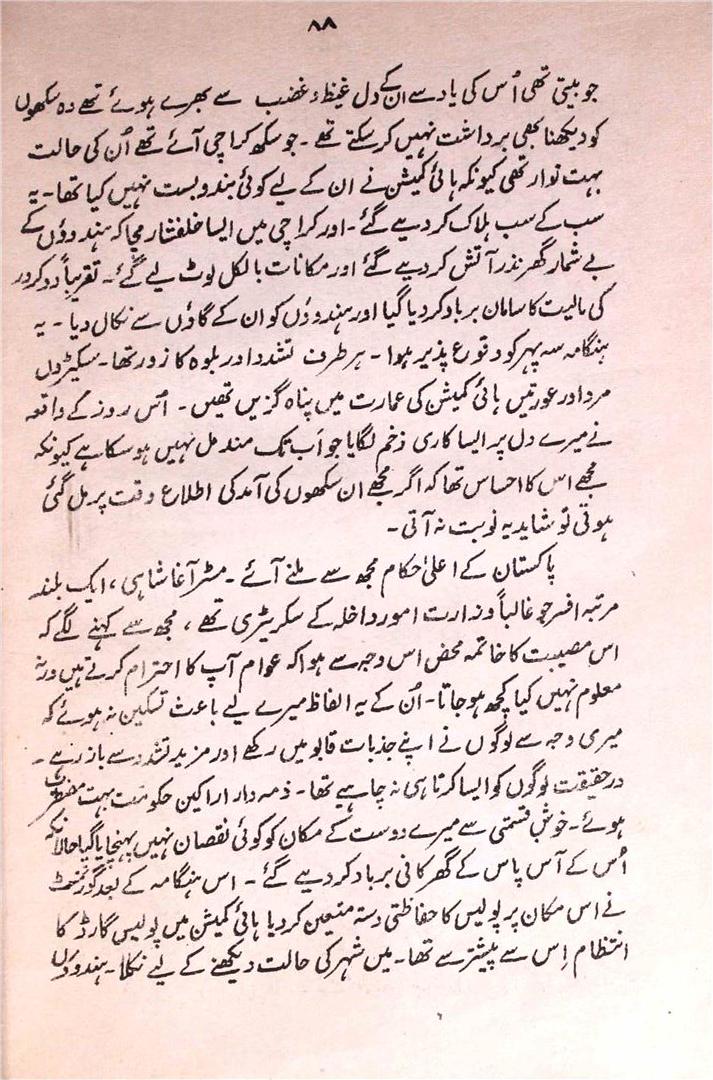 ۸۸
جو بیتی تھی اُس کی یاد سے ان کے دل غیظ و غضب سے بھرے ہوئے تھے وہ سکھوں
کو دیکھنا بھی برداشت نہیں کر سکتے تھے ۔ جو سکھ کراچی آئے تھے اُن کی حالت
بہت نوار تھی کیونکہ ہائی کمیشن نے ان کے لیے کوئی بندوبست نہیں کیا تھا ۔ یہ
سب کے سب ہلاک کر دیے گئے ۔ اور کراچی میں ایسا خلفشار مچا کہ ہندوؤں کے
بے شمار گھر نذر آتش کر دیے گئے اور مکانات بالکل لوٹ لیے گئے ۔ تقریباً دو کرور
کی مالیت کا سامان برباد کر دیا گیا اور ہندوؤں کو ان کے گاؤں سے نکال دیا ۔ یہ
ہنگامہ سہ پہر کو وقوع پذیر ہوا ۔ ہر طرف تشدد اور بلوہ کا زور تھا ۔ سیکڑوں
مرد اور عورتیں ہائی کمیشن کی عمارت میں پناہ گزیں تھیں ۔ اُس روز کے واقعہ
نے میرے دل پر ایسا کاری زخم لگایا جو اَب تک مندمل نہیں ہو سکا ہے کیونکہ
مجھے اس کا احساس تھا کہ اگر مجھے ان سکھوں کی آمد کی اطلاع وقت پر مل گئی
ہوتی تو شاید یہ نوبت نہ آتی ۔
پاکستان کے اعلیٰ حکام مجھ سے ملنے آئے ۔ مسٹر آغا شاہی ، ایک بلند
مرتبہ افسر جو غالباً وزارت امور داخلہ کے سکریٹری تھے ، مجھ سے کہنے لگے کہ
اس مصیبت کا خاتمہ محض اس وجہ سے ہوا کہ عوام آپ کا احترام کرتے ہیں ورنہ
معلوم نہیں کیا کچھ ہو جاتا ۔ اُن کے یہ الفاظ میرے لیے باعث تسکین نہ ہوئے کہ
میری وجہ سے لوگوں نے اپنے جذبات قابو میں رکھے اور مزید تشدد سے باز رہے ۔
درحقیقت لوگوں کو ایسا کرنا ہی نہ چاہیے تھا ۔ ذمہ دار اراکین حکومت بہت
ہوئے ۔ خوش قسمتی سے میرے دوست کے مکان کو کوئی نقصان نہیں پہنچایا گیا حالانکہ
اُس کے آس پاس کے گھر کافی برباد کر دیے گئے ۔ اس ہنگامہ کے بعد گورنمنٹ
نے اس مکان پر پولیس کا حفاظتی دستہ متعین کر دیا ہائی کمیشن میں پولیس گارڈ کا
انتظام اِس سے پیشتر سے تھا ۔ میں شہر کی حالت دیکھنے کے لیے نکلا ۔ ہندوؤں